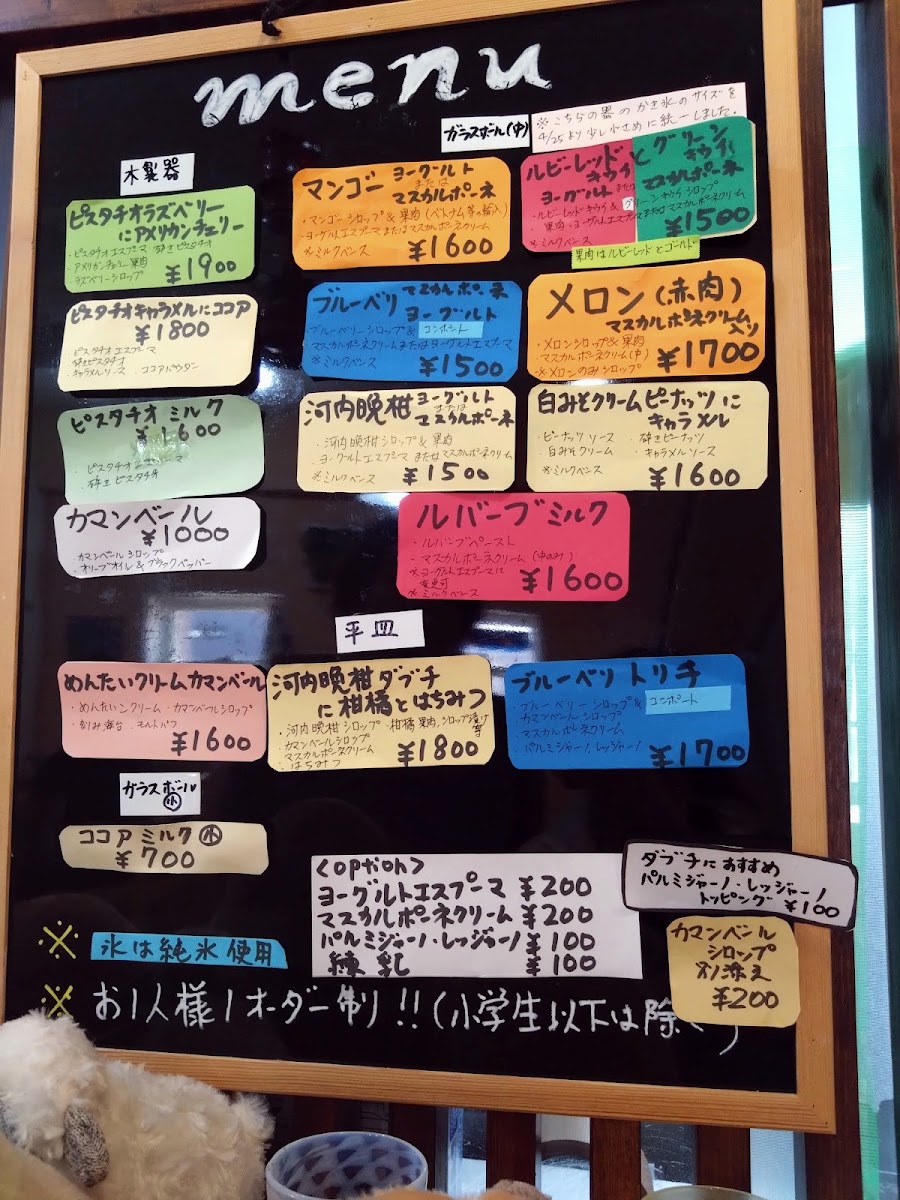 menu
ガラスボール(中)
※こちらの器のかき氷のサイズを
4/25より少し小さめに統一しました。
木製器
ピスタチオラズベリー
にアメリカンチェリー
・ピスタチオエスプーマ 砕きピスタチオ
・アメリカンチェリー果肉
・ラズベリーシロップ
¥1900
ピスタチオキャラメルにココア
¥1800
ピスタチオエスプーマ
砕きピスタチオ
キャラメルソース . ココアパウダー
ピスタチオ ミルク
¥1600
・ピスタチオエスプーマ
・砕きピスタチオ
カマンベール
¥1000
カマンベールシロップ
・オリーブオイル&ブラックペッパー
マンゴー ヨーグルト
または
マスカルポーネ
・マンゴーシロップ&果肉(ベトナム等の輸入)
・ヨーグルトエスプーマまたはマスカルポーネクリーム
※ミルクベース
¥1600
ルビーレッドキウイとグリーンキウイ
ヨーグルトまたは
マスカルポーネ
・ルビーレッドキウイ&グリーンキウイシロップ
果肉・ヨーグルトエスプーマまたはマスカルポーネクリーム
※ミルクベース
¥1500
果肉はルビーレッドとゴールド
ブルーベリ マスカルポーネ
ヨーグルト
ブルーベリーシロップ& コンポート
マスカルポーネクリームまたはヨーグルトエスプーマ
※ミルクベース
¥1500
メロン(赤肉)
マスカルポーネクリーム
入り
・メロンシロップ&果肉
マスカルポーネクリーム(中)
※メロンのみシロップ
¥1700
河内晩柑 ヨーグルト
または
マスカルポーネ
・河内晩柑シロップ&果肉
・ヨーグルトエスプーマまたはマスカルポーネクリーム
※ミルクベース
¥1500
白みそクリームピーナッツに
キャラメル
・ピーナッツソース ・砕きピーナッツ
・白みそクリーム ・キャラメルソース
※ミルクベース
¥1600
ルバーブミルク
・ルバーブペースト
・マスカルポーネクリーム(中のみ)
※ヨーグルトエスプーマに
変更可
※ミルクベース
¥1600
平皿
めんたいクリームカマンベール
・めんたいクリーム・カマンベールシロップ
¥1600
河内晩柑ダブチ
に柑橘とはちみつ
・河内晩柑シロップ・柑橘果肉,シロップ漬け等
・カマンベールシロップ
マスカルポーネクリーム
・はちみつ
¥1800
ブルーベリ トリチ
ブルーベリーシロップ& コンポート
カマンベールシロップ
マスカルポーネクリーム
パルミジャーノ.レッジャーノ
¥1700
ガラスボール
小
ココアミルク小
¥700
<option>
ヨーグルトエスプーマ ¥200
マスカルポーネクリーム ¥200
パルミジャーノ・レッジャーノ ¥100
練乳 ¥100
ダブチにおすすめ
パルミジャーノ・レッジャーノ
トッピング ¥100
カマンベール
シロップ
別添え
¥200
※ 氷は純氷使用
※ お1人様1オーダー制り!!(小学生以下は除く)